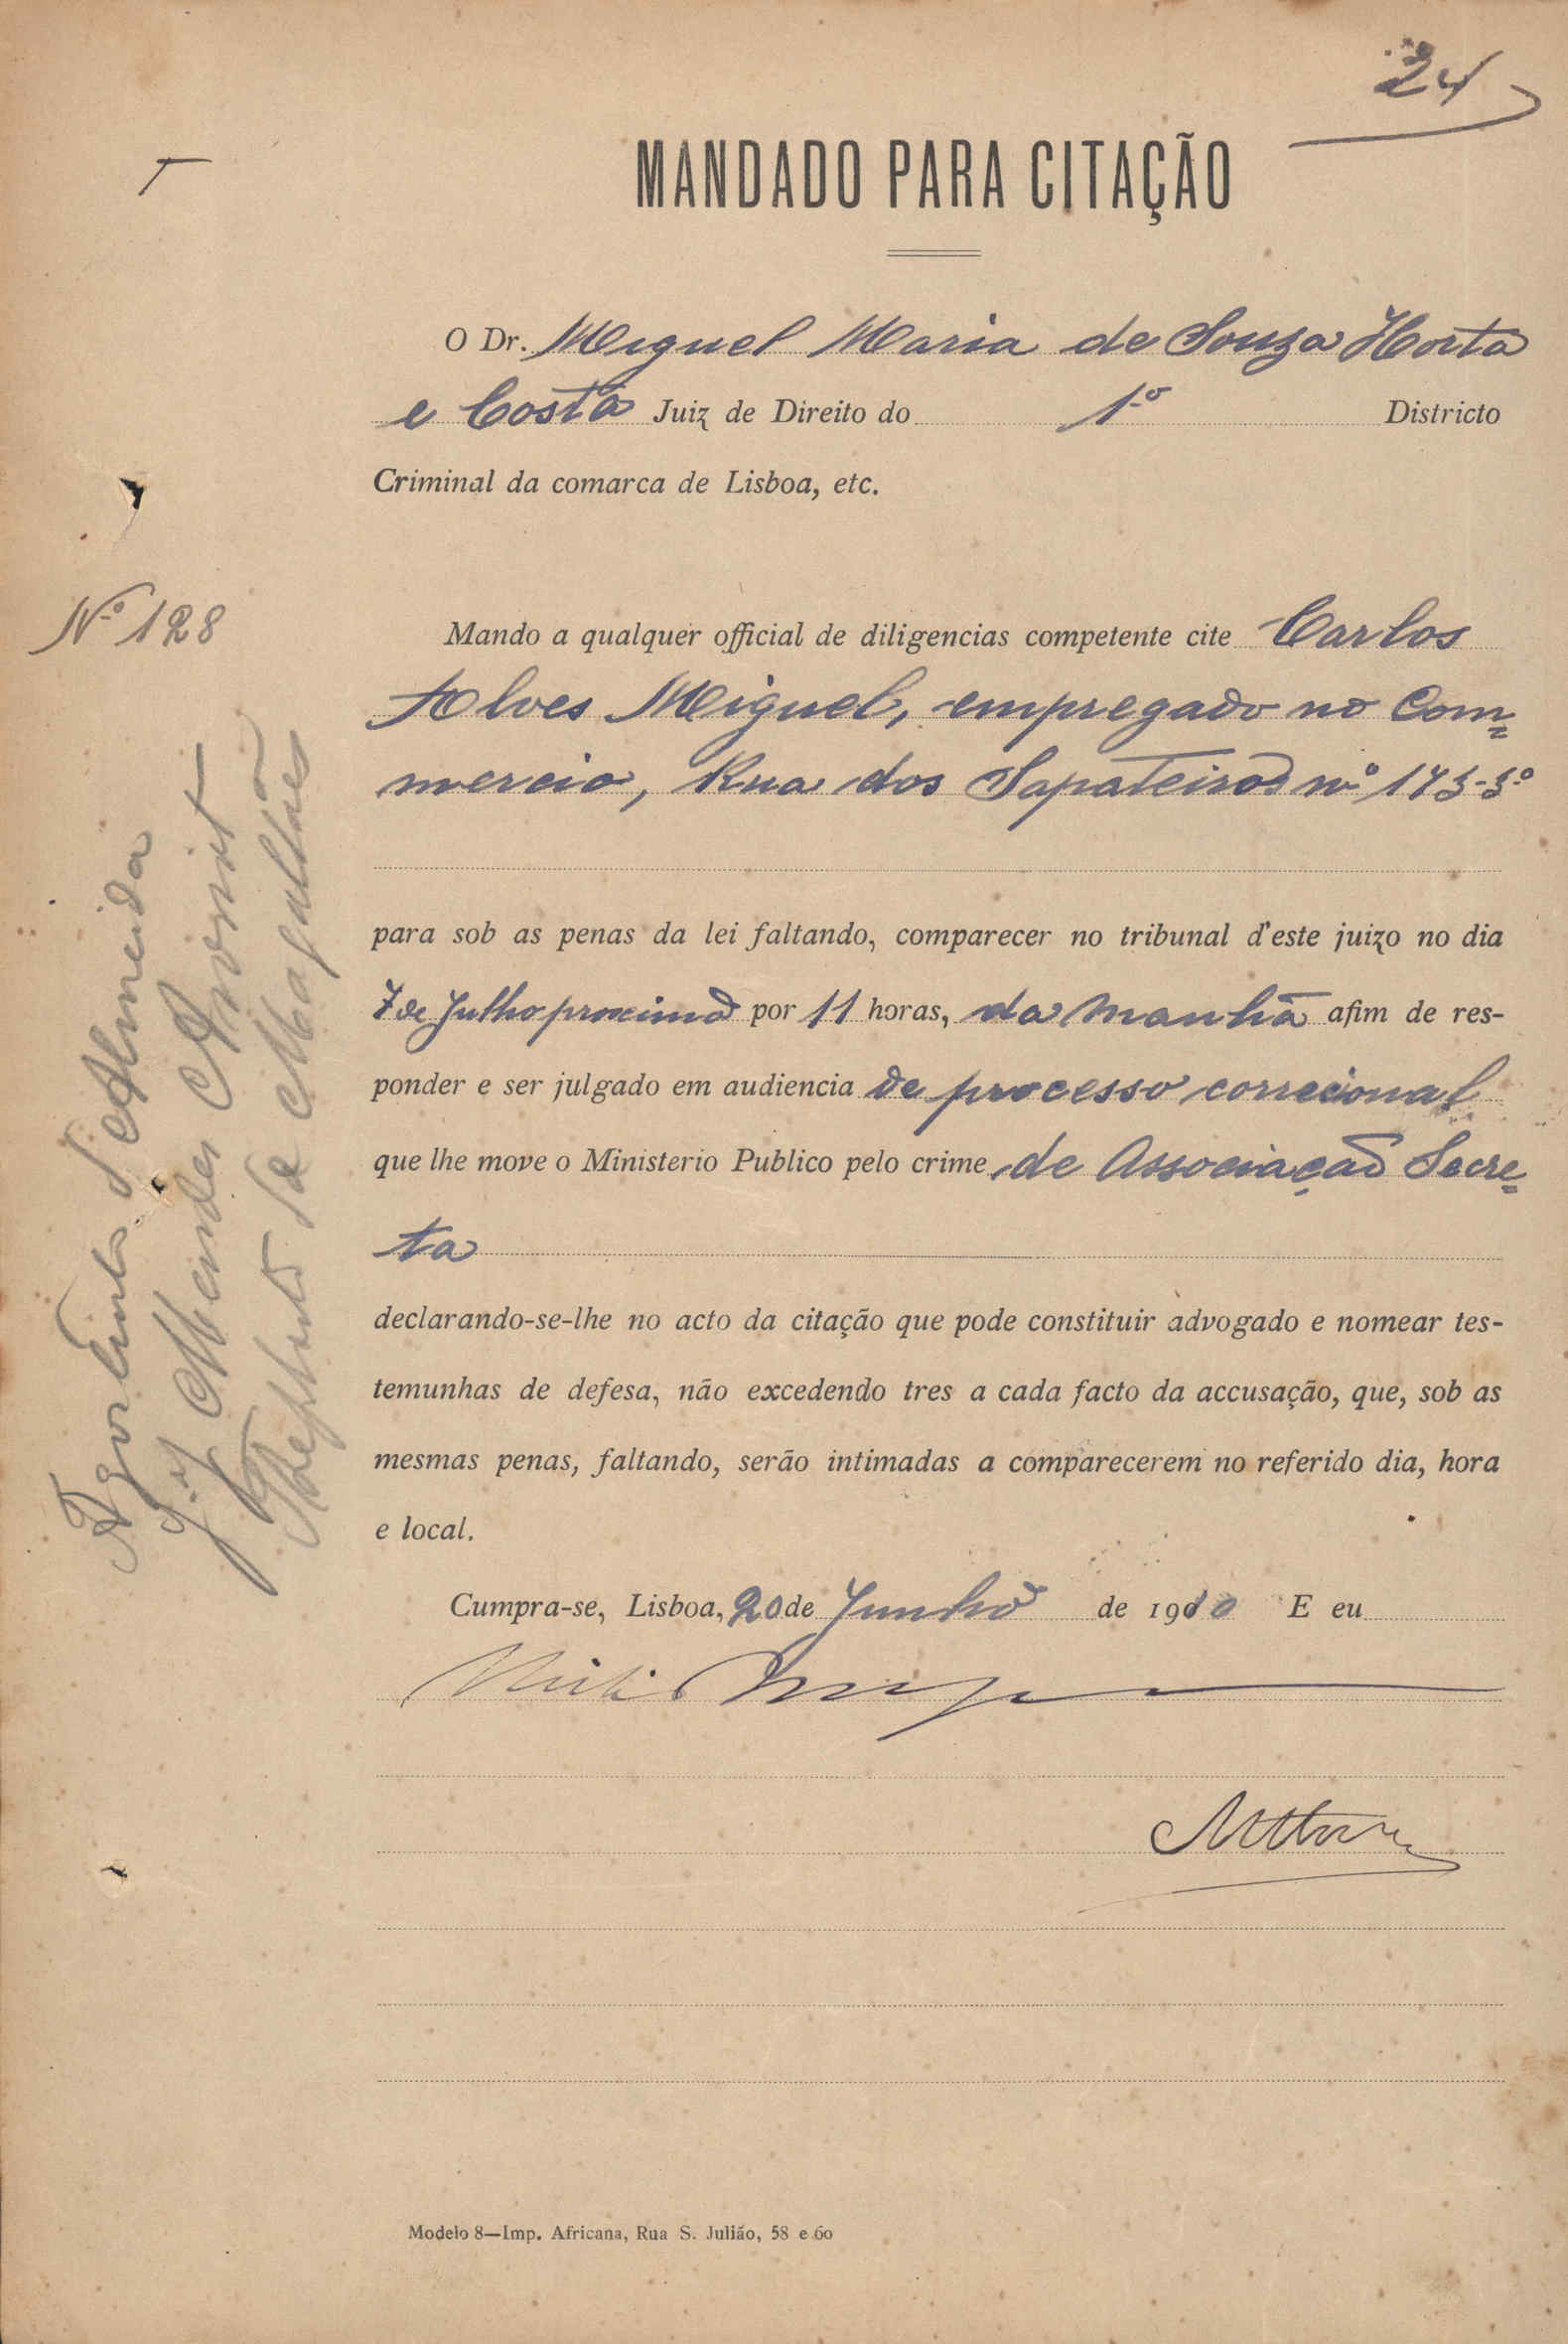 24
MANDADO PARA CITAÇÃO
O Dr. Miguel Maria de Souza Horta
e Costa Juiz de Direito do 1º Districto
Criminal da comarca de Lisboa, etc.
Nº 128
Mando a qualquer official de diligencias competente cite Carlos
Alves Miguel, empregado no Com=
mercio, Rua dos Sapateiros nº 173-3º
para sob as penas da lei faltando, comparecer no tribunal d'este juizo no dia
7 de Julho proximo por 11 horas, da manhã afim de res-
ponder e ser julgado em audiencia de processo correcional
que lhe move o Ministerio Publico pelo crime de Associação Secre=
ta
declarando-se-lhe no acto da citação que pode constituir advogado e nomear tes-
temunhas de defesa, não excedendo tres a cada facto da accusação, que, sob as
mesmas penas, faltando, serão intimadas a comparecerem no referido dia, hora
e local.
Cumpra-se, Lisboa, 20 de Junho de 1910 E eu
Modelo 8—Imp. Africana, Rua S. Julião, 58 e 60
d'Almeida
Mendes
de Magalhães